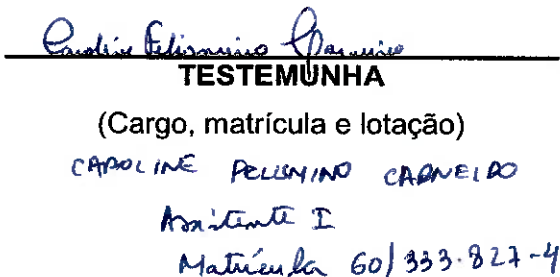 Caroline Felismino Carneiro
TESTEMUNHA
(Cargo, matrícula e lotação)
CAROLINE FELISMINO CARNEIRO
Assistente I
Matrícula 60/333.827-4